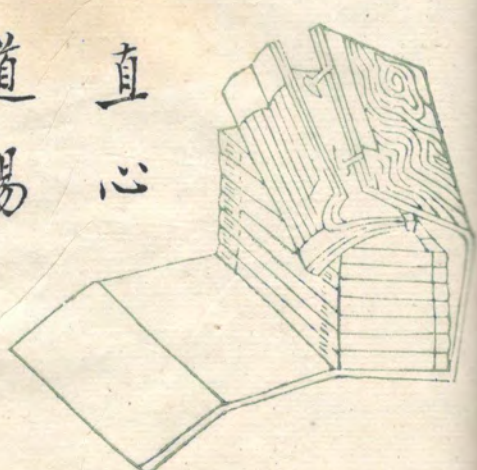 直心
道場